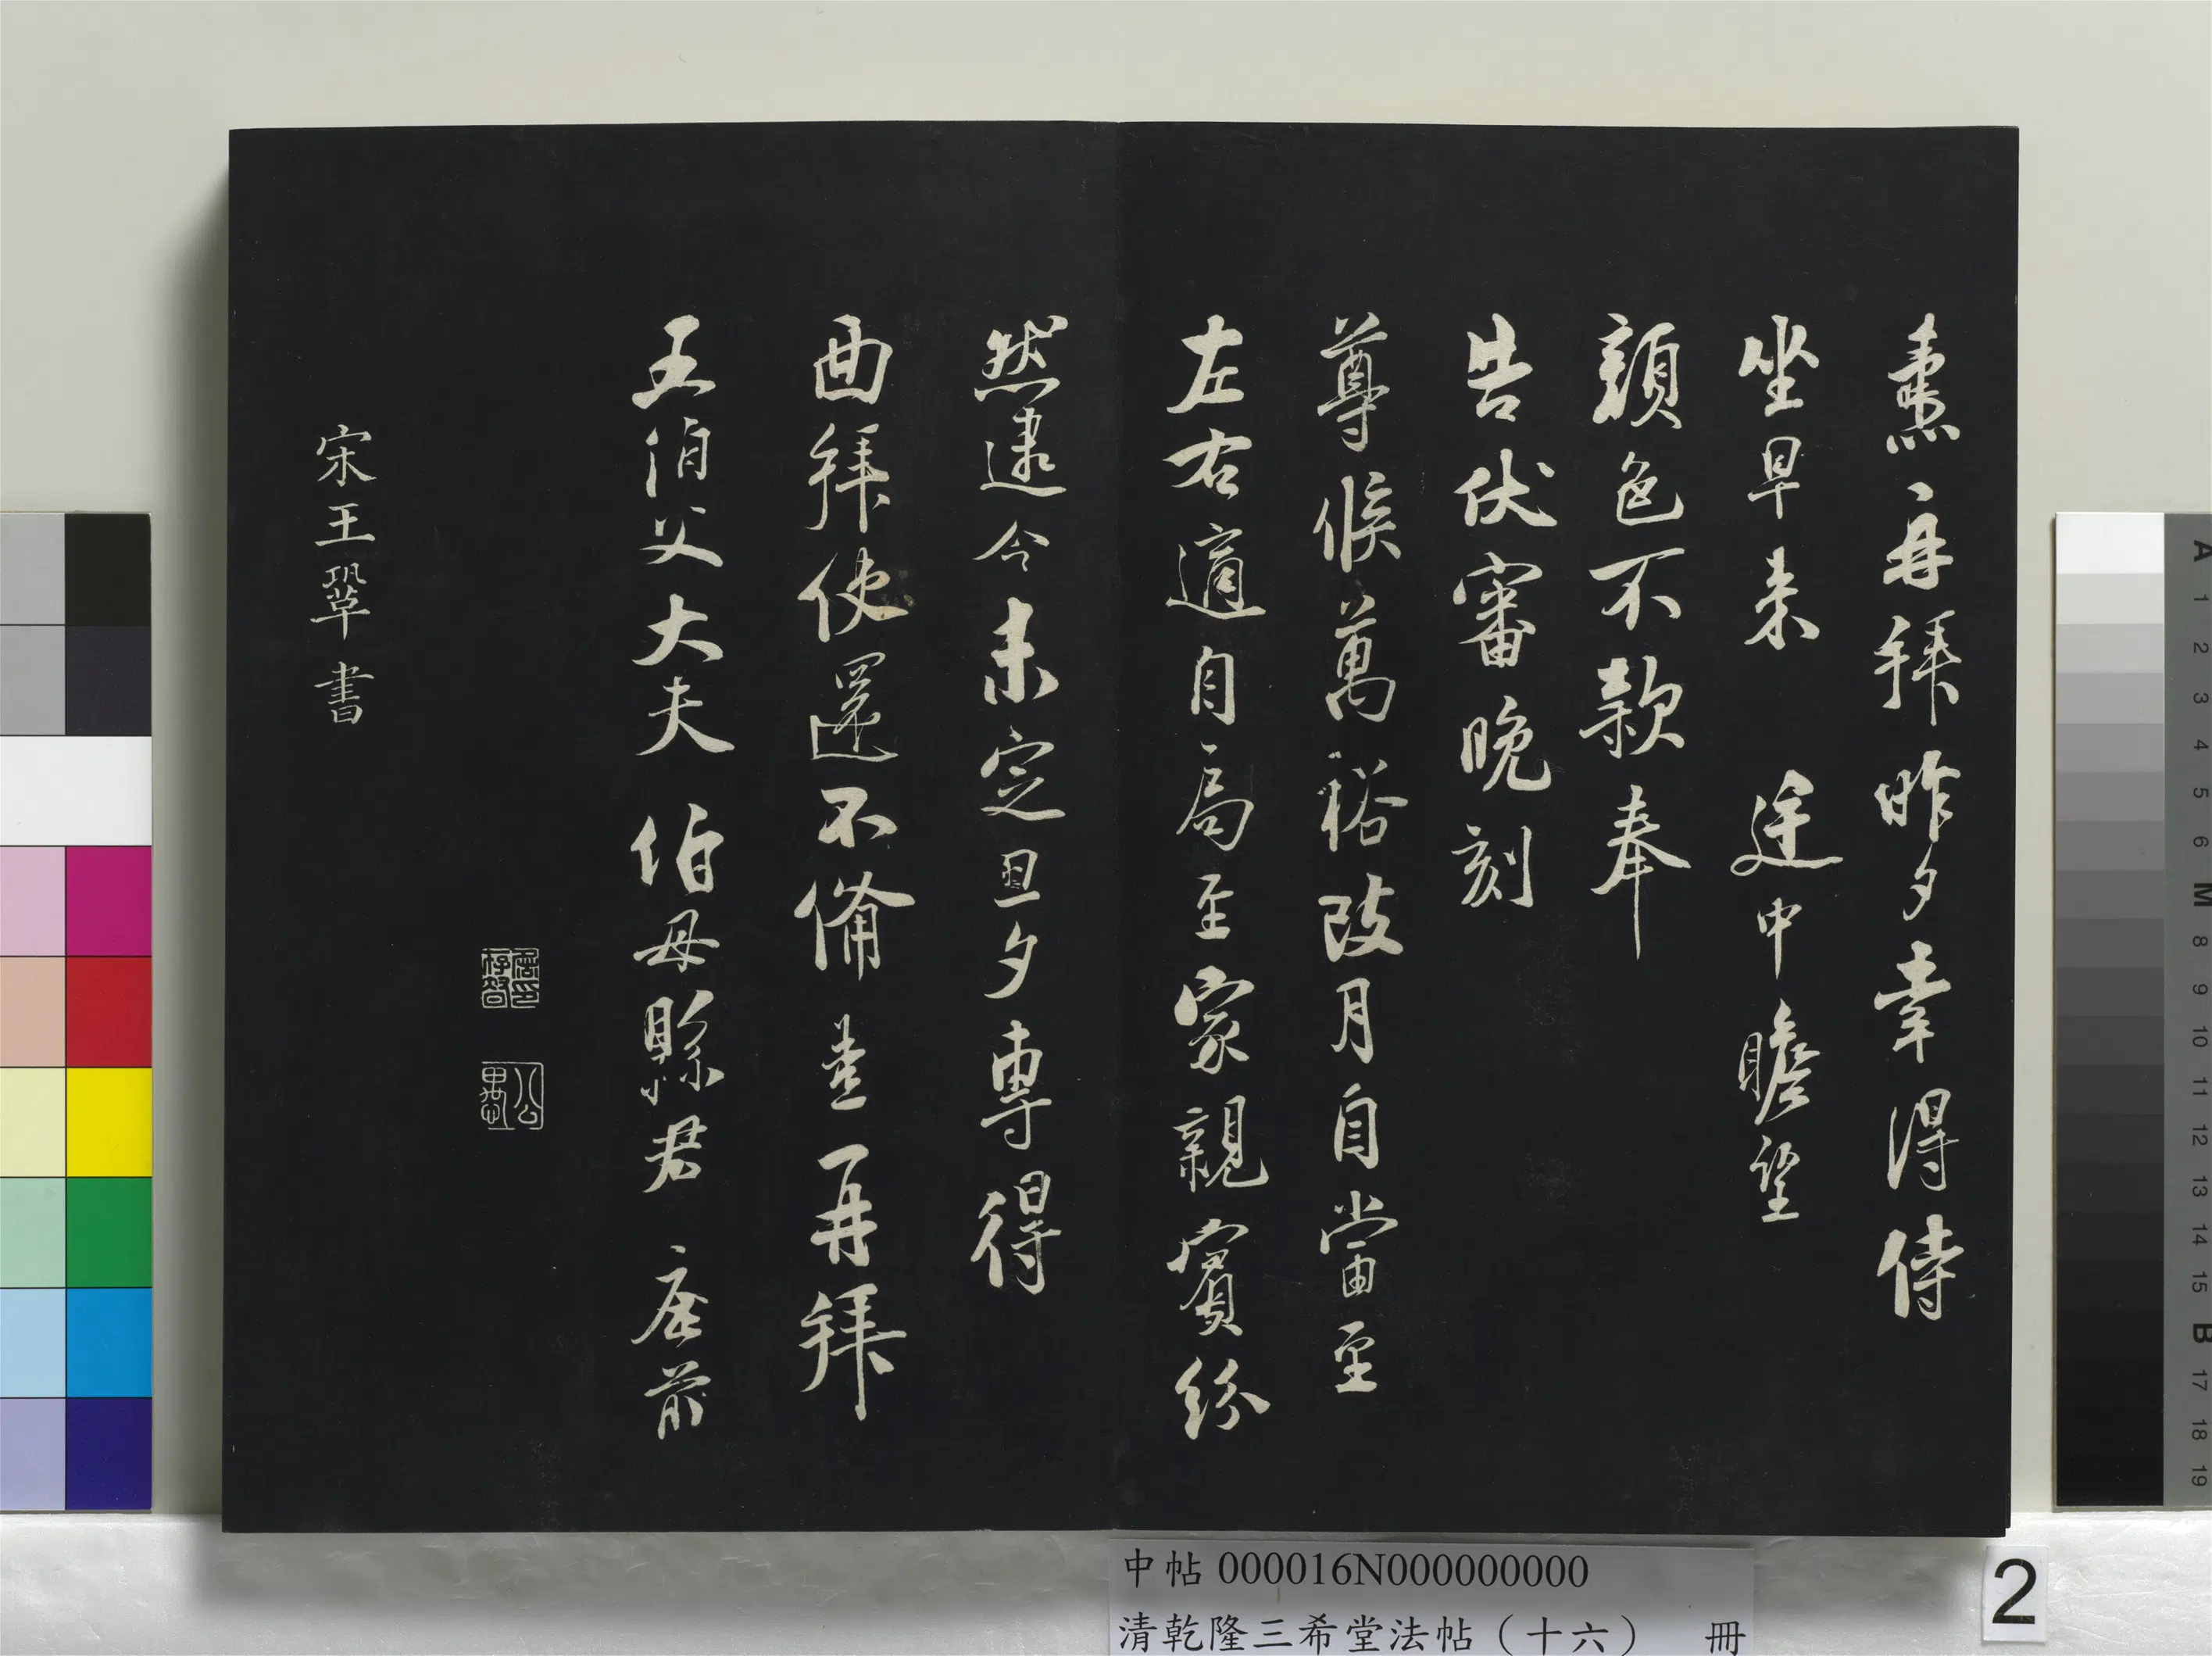 燾再拜昨夕幸得侍
坐早來 途中瞻望
顏色不款奉
告伏審晚刻
尊候萬裕改月自當至
左右適自局至家親賓紛
然逮今未定旦夕專得
面拜使還不備 燾再拜
五伯父大夫 伯母縣君 座前
宋王鞏書
中帖 000016N000000000
清乾隆三希堂法帖（十六） 冊
2
A
1
2
3
4
5
6
M
8
9
10
11
12
13
14
15
B
17
18
19